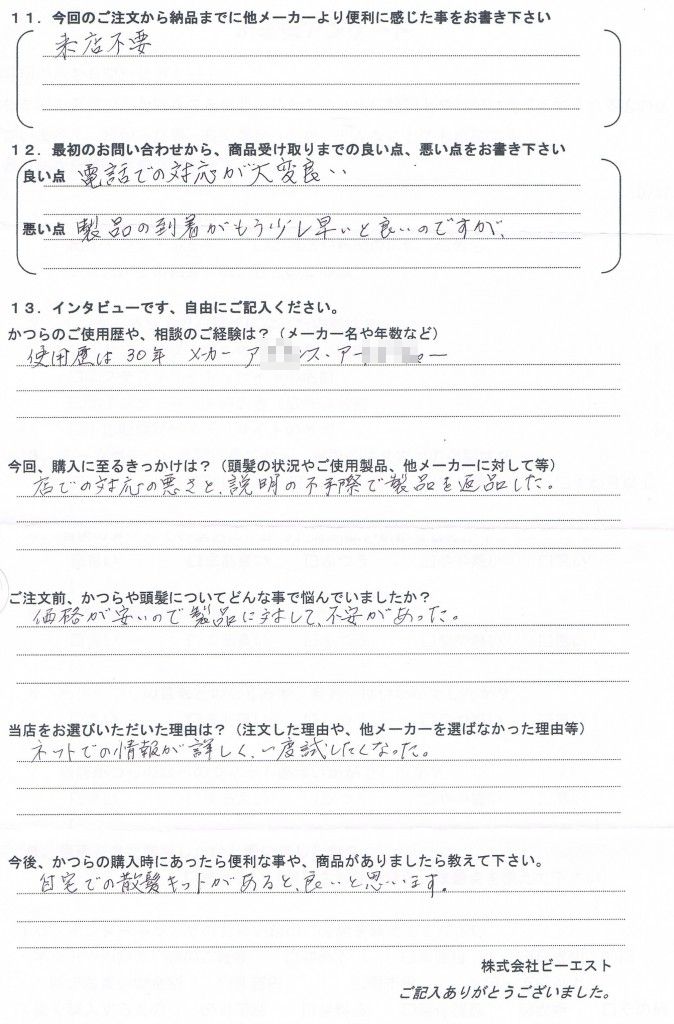 １１．今回のご注文から納品までに他メーカーより便利に感じた事をお書き下さい
来店不要
１２．最初のお問い合わせから、商品受け取りまでの良い点、悪い点をお書き下さい
良い点 電話での対応が大変良い
悪い点 製品の到着がもう少し早いと良いのですが、
１３．インタビューです、自由にご記入ください。
かつらのご使用歴や、相談のご経験は？（メーカー名や年数など）
使用歴は30年 メーカー ア ンス・アー ー
今回、購入に至るきっかけは？（頭髪の状況やご使用製品、他メーカーに対して等）
店での対応の悪さと、説明の不手際で製品を返品した。
ご注文前、かつらや頭髪についてどんな事で悩んでいましたか？
価格が安いので製品に対して、不安があった。
当店をお選びいただいた理由は？（注文した理由や、他メーカーを選ばなかった理由等）
ネットでの情報が詳しく、一度試したくなった。
今後、かつらの購入時にあったら便利な事や、商品がありましたら教えて下さい。
自宅での散髪キットがあると、良いと思います。
株式会社ビーエスト
ご記入ありがとうございました。